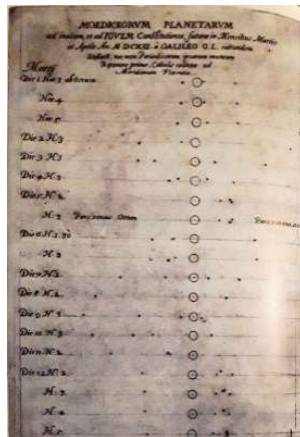 MOEDICEORVM PLANETARVM
ad invicem, et ad IOVEM Constitutiones, futuræ in Mensibus Martio
et Aprile An: M DCXIII à GALILEO G.L. earundem
Stellarū, nec non Periodicorum ipsarum motuum
Repertore primo, Calculis collectæ ad
Meridianum Florentiæ
Martij
Die 1 Hor. 3 ab Occasu
Hor. 4
Hor. 5
Die 2 H. 3
Die 3 H. 3
Die 4 H. 2
Die 5 H. 2
H. 3 Pars versus Ortum Pars versus occ
Die 6 H. 1. 30
H. 3
Die 7 H. 2
Die 8 H. 2
Die 9 H. 2
Die 10 H. 3
Die 11 H. 2
Die 12 H. 2
H. 3
H. 4
H. 5